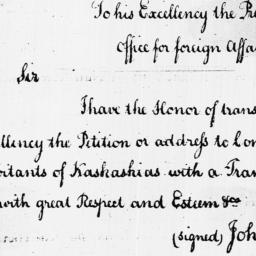 To his Excellency the Pre
Office for foreign Affa
Sir
I have the Honor of trans
llency the Petition or address to Con
bitants of Kaskaskias with a Tran
with great Respect and Esteem &ca
(signed) Joh